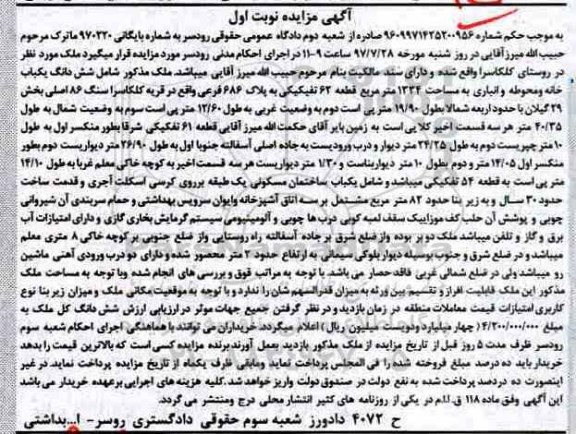 آگهی مزایده نوبت اول
به موجب حکم شماره ۹۶۰۹۹۷۱۴۲۵۲۰۰۹۵۶ صادره از شعبه دوم دادگاه عمومی حقوقی رودسر به شماره بایگانی ۹۷۰۲۲۰ ماترک مرحوم
حبیب الله میرزآقایی در روز شنبه مورخه ۹۷/۷/۲۸ ساعت ۹-۱۱ در اجرای احکام مدنی رودسر مورد مزایده قرار میگیرد ملک مورد نظر
در روستای کلکاسرا واقع شده و دارای سند مالکیت بنام مرحوم حبیب الله میرزآقایی میباشد. ملک مذکور شامل شش دانگ یکباب
خانه ومحوطه و انباری به مساحت ۱۳۲۴ متر قطعه ۶۲ تفکیکی به پلاک ۶۸۶ فرعی واقع در قریه کلکاسرا سنگ ۸۶ اصلی بخش
۲۹ گیلان با حدود اربعه شمالا بطول ۱۹/۹۰ متر پی است دوم به وضعیت غربی به طول ۱۲/۶۰ متر پی است سوم به وضعیت شمال به طول
۴۰/۳۵ متر هر سه قسمت اخیر کلا پی است به زمین بایر آقای حکمت الله میرزآقایی قطعه ۶۱ تفکیکی شرقا بطور منکسر اول به طول
۱۰ متر چپریست دوم به طول ۲۴/۲۵ متر دیوار و درب ورودیست به جاده اصلی آسفالته جنوبا اول به طول ۲۶/۹۰ متر دیواریست دوم بطور
منکسر اول ۱۴/۰۵ متر و دوم بطول ۱۰ متر دیواربناست و ۱/۳۰ متر دیواریست هر سه قسمت اخیر به کوچه خاکی معلم غربا به طول ۱۴/۱۰
متر پی است به قطعه ۵۴ تفکیکی میباشد و شامل یکباب ساختمان مسکونی یک طبقه برروی کرسی اسکلت آجری و قدمت ساخت
حدود ۳۰ سال و به زیر بنا حدود ۸۲ متر مربع مشتمل بر سه اتاق آشپزخانه وایوان سرویس بهداشتی و حمام سربندی آن شیروانی
چوبی و پوشش آن حلب کف موزاییک سقف لمبه کوبی درب ها چوبی و آلومینیومی سیستم گرمایش بخاری گازی و دارای امتیازات آب
برق و گاز و تلفن میباشد. ملک دو بر بوده واز ضلع شرق بر جاده آسفالته راه روستایی واز ضلع جنوبی بر کوچه خاکی ۸ متری معلم
میباشد و در ضلع شرق و جنوب بوسیله دیوار بلوکی سیمانی به ارتفاع حدود ۲ متر محصور شده و دارای دو درب ورودی آهنی ماشین
رو میباشد ولی در ضلع شمالی غربی فاقد حصار می باشد. با توجه به مراتب فوق و بررسی های انجام شده وبا توجه به مساحت ملک
مذکور این ملک قابلیت افراز و تقسیم بین ورثه به میزان قدرالسهم شان را ندارد و با توجه به موقعیت مکانی ملک و میزان زیر بنا نوع
کاربری امتیازات قیمت معاملات منطقه در زمان بازدید و در نظر گرفتن جمیع جهات موثر در ارزیابی ارزش شش دانگ کل ملک به
مبلغ ۴/۲۰۰/۰۰۰/۰۰۰ ( چهار میلیارد و دویست میلیون ریال ) اعلام میگردد. خریداران می توانند با هماهنگی اجرای احکام شعبه سوم
رودسر ظرف مدت ۵ روز قبل از تاریخ مزایده از ملک مذکور بازدید بعمل آورند برنده مزایده کسی است که بالاترین قیمت را بدهد
خریدار باید ده درصد مبلغ فروخته شده را فی المجلس پرداخت نماید ومابقی ظرف یکماه از تاریخ مزایده پرداخت نماید. در غیر
اینصورت ده درصد پرداخت شده به نفع دولت در صندوق دولت واریز خواهد شد. کلیه هزینه های اجرایی برعهده خریدار می باشد
این آگهی وفق ماده ۱۱۸ ق.ا.م در یکی از روزنامه های کثیر انتشار محلی درج ومنتشر می گردد.
ح ۴۰۷۲ دادورز شعبه سوم حقوقی دادگستری روسر-